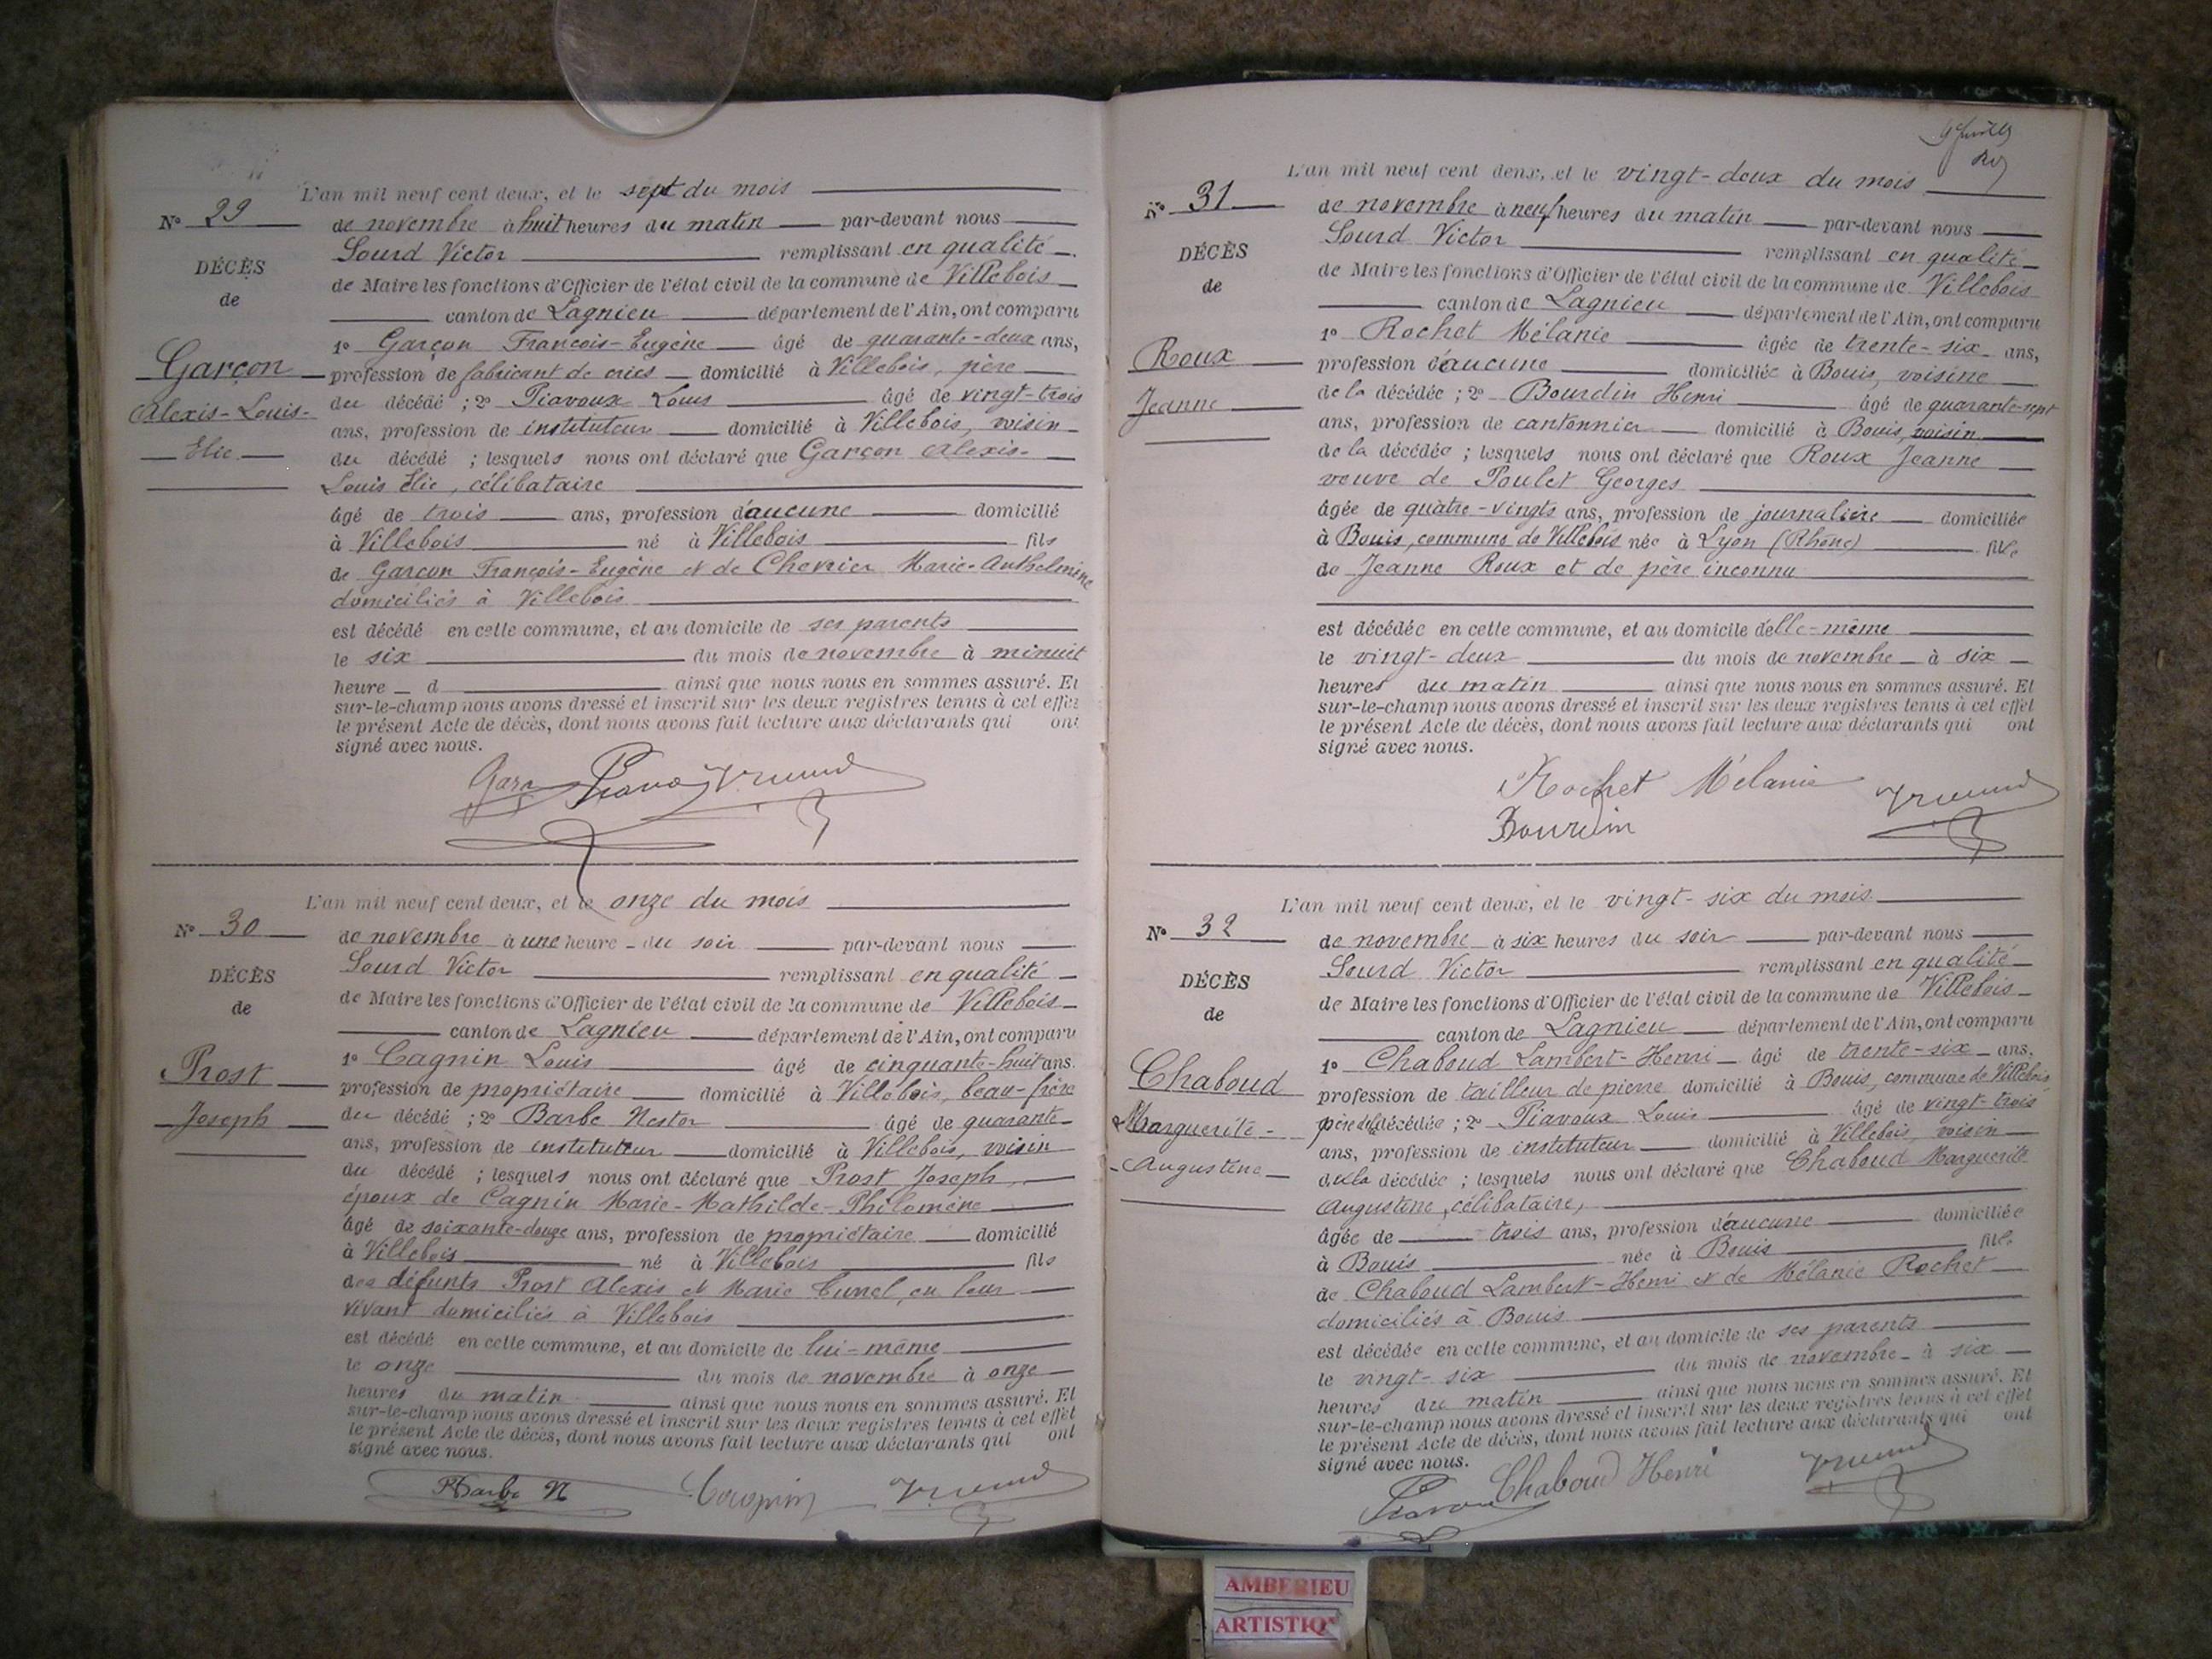 L'an mil neuf cent deux, et le sept du mois
N° 29
de novembre à huit heures du matin par-devant nous
Sourd Victor remplissant en qualité
DÉCÈS
de Maire les fonctions d'Officier de l'état civil de la commune de Villebois
de
canton de Lagnieu département de l'Ain, ont comparu
1° Garçon François-Eugène âgé de quarante-deux ans,
Garçon
profession de fabricant de crics domicilié à Villebois, père
Alexis-Louis-
du décédé ; 2° Piavoux Louis âgé de vingt-trois
ans, profession de instituteur domicilié à Villebois, voisin
Elie
du décédé ; lesquels nous ont déclaré que Garçon Alexis-
Louis Elie, célibataire
âgé de trois ans, profession d'aucune domicilié
à Villebois né à Villebois fils
de Garçon François-Eugène et de Chevrier Marie-Anthelmine
domiciliés à Villebois
est décédé en cette commune, et au domicile de ses parents
le six du mois de novembre à minuit
heure d ainsi que nous nous en sommes assuré. Et
sur-le-champ nous avons dressé et inscrit sur les deux registres tenus à cet effet
le présent Acte de décès, dont nous avons fait lecture aux déclarants qui ont
signé avec nous.
L'an mil neuf cent deux, et le onze du mois
N° 30
de novembre à une heure du soir par-devant nous
Sourd Victor remplissant en qualité
DÉCÈS
de Maire les fonctions d'Officier de l'état civil de la commune de Villebois
de
canton de Lagnieu département de l'Ain, ont comparu
1° Cagnin Louis âgé de cinquante-huit ans.
Prost
profession de propriétaire domicilié à Villebois, beau-frère
Joseph
du décédé ; 2° Barbe Nestor âgé de quarante
ans, profession de instituteur domicilié à Villebois, voisin
du décédé ; lesquels nous ont déclaré que Prost Joseph,
époux de Cagnin Marie-Mathilde-Philomène
âgé de soixante-douze ans, profession de propriétaire domicilié
à Villebois né à Villebois fils
des défunts Prost Alexis et Marie Curel, en leur
vivant domiciliés à Villebois
est décédé en cette commune, et au domicile de lui-même
le onze du mois de novembre à onze
heures du matin ainsi que nous nous en sommes assuré. Et
sur-le-champ nous avons dressé et inscrit sur les deux registres tenus à cet effet
le présent Acte de décès, dont nous avons fait lecture aux déclarants qui ont
signé avec nous.
Barbe N Cagnin
L'an mil neuf cent deux, et le vingt-deux du mois
N° 31
de novembre à neuf heures du matin par-devant nous
Sourd Victor remplissant en qualité
DÉCÈS
de Maire les fonctions d'Officier de l'état civil de la commune de Villebois
de
canton de Lagnieu département de l'Ain, ont comparu
1° Rochet Mélanie âgée de trente-six ans,
Roux
profession d'aucune domiciliée à Bouis, voisine
Jeanne
de la décédée ; 2° Bourdin Henri âgé de quarante-sept
ans, profession de cantonnier domicilié à Bouis, voisin
de la décédée ; lesquels nous ont déclaré que Roux Jeanne
veuve de Poulet Georges
âgée de quatre-vingts ans, profession de journalière domiciliée
à Bouis, commune de Villebois née à Lyon (Rhône) fille
de Jeanne Roux et de père inconnu
est décédée en cette commune, et au domicile d'elle-même
le vingt-deux du mois de novembre à six
heures du matin ainsi que nous nous en sommes assuré. Et
sur-le-champ nous avons dressé et inscrit sur les deux registres tenus à cet effet
le présent Acte de décès, dont nous avons fait lecture aux déclarants qui ont
signé avec nous.
Rochet Mélanie
Bourdin
L'an mil neuf cent deux, et le vingt-six du mois
N° 32
de novembre à six heures du soir par-devant nous
Sourd Victor remplissant en qualité
DÉCÈS
de Maire les fonctions d'Officier de l'état civil de la commune de Villebois
de
canton de Lagnieu département de l'Ain, ont comparu
1° Chaboud Lambert-Henri âgé de trente-six ans,
Chaboud
profession de tailleur de pierre domicilié à Bouis, commune de Villebois
Marguerite-
père de la décédée ; 2° Piavoux Louis âgé de vingt-trois
ans, profession de instituteur domicilié à Villebois, voisin
Augustine
de la décédée ; lesquels nous ont déclaré que Chaboud Marguerite
Augustine, célibataire,
âgée de trois ans, profession d'aucune domiciliée
à Bouis née à Bouis fille
de Chaboud Lambert-Henri et de Mélanie Rochet
domiciliés à Bouis
est décédée en cette commune, et au domicile de ses parents
le vingt-six du mois de novembre à six
heures du matin ainsi que nous nous en sommes assuré. Et
sur-le-champ nous avons dressé et inscrit sur les deux registres tenus à cet effet
le présent Acte de décès, dont nous avons fait lecture aux déclarants qui ont
signé avec nous.
Chaboud Henri
AMBERIEU
ARTISTIQ